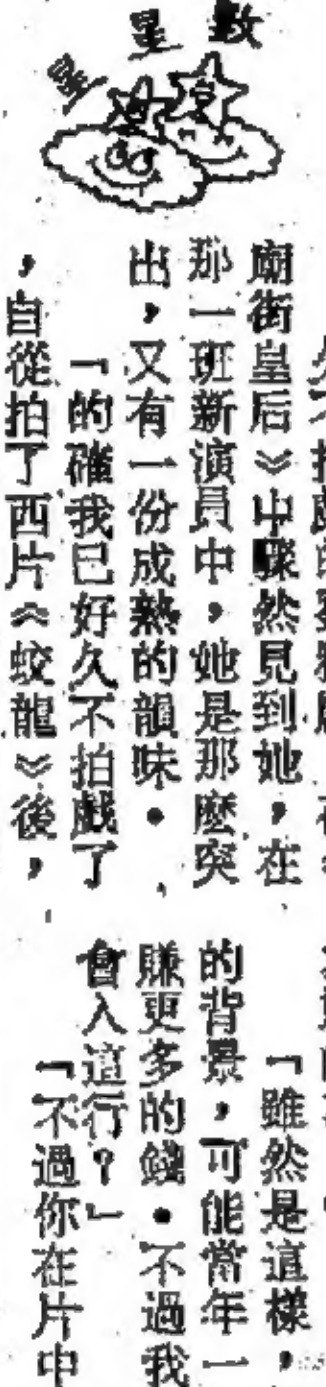 數星星
久不拍戲的
廟街皇后》中驟然見到她，在
那一班新演員中，她是那麼突
出，又有一份成熟的韻味。
「的確我已好久不拍戲了
，自從拍了西片《蛟龍》後，
「雖然是這樣，
的背景，可能當年一
賺更多的錢。不過我
會入這行？」
「不過你在片中